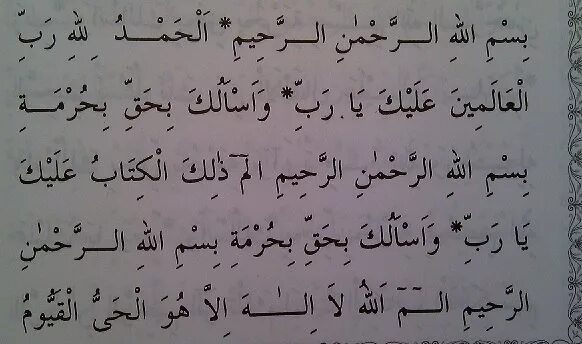 بِسْمِ اللهِ الـرَّحْمٰنِ الـرَّحِيمِ* اَلْحَمْـدُ لِلّٰهِ رَبِّ
الْعَالَمِينَ عَلَيْكَ يَا رَبِّ* وَاَسْأَلُكَ بِحَقِّ بِحُرْمَـةِ
بِسْمِ اللهِ الرَّحْمٰنِ الرَّحِيمِ الٓمٓ ذٰلِكَ الْكِتَابُ عَلَيْكَ
يَا رَبِّ* وَاَسْأَلُكَ بِحَقِّ بِحُرْمَةِ بِسْمِ اللهِ الـرَّحْمٰنِ
الرَّحِيمِ الٓـمٓ اَللهُ لاَ اِلٰـهَ اِلاَّ هُوَ الْحَىُّ الْقَيُّومُ